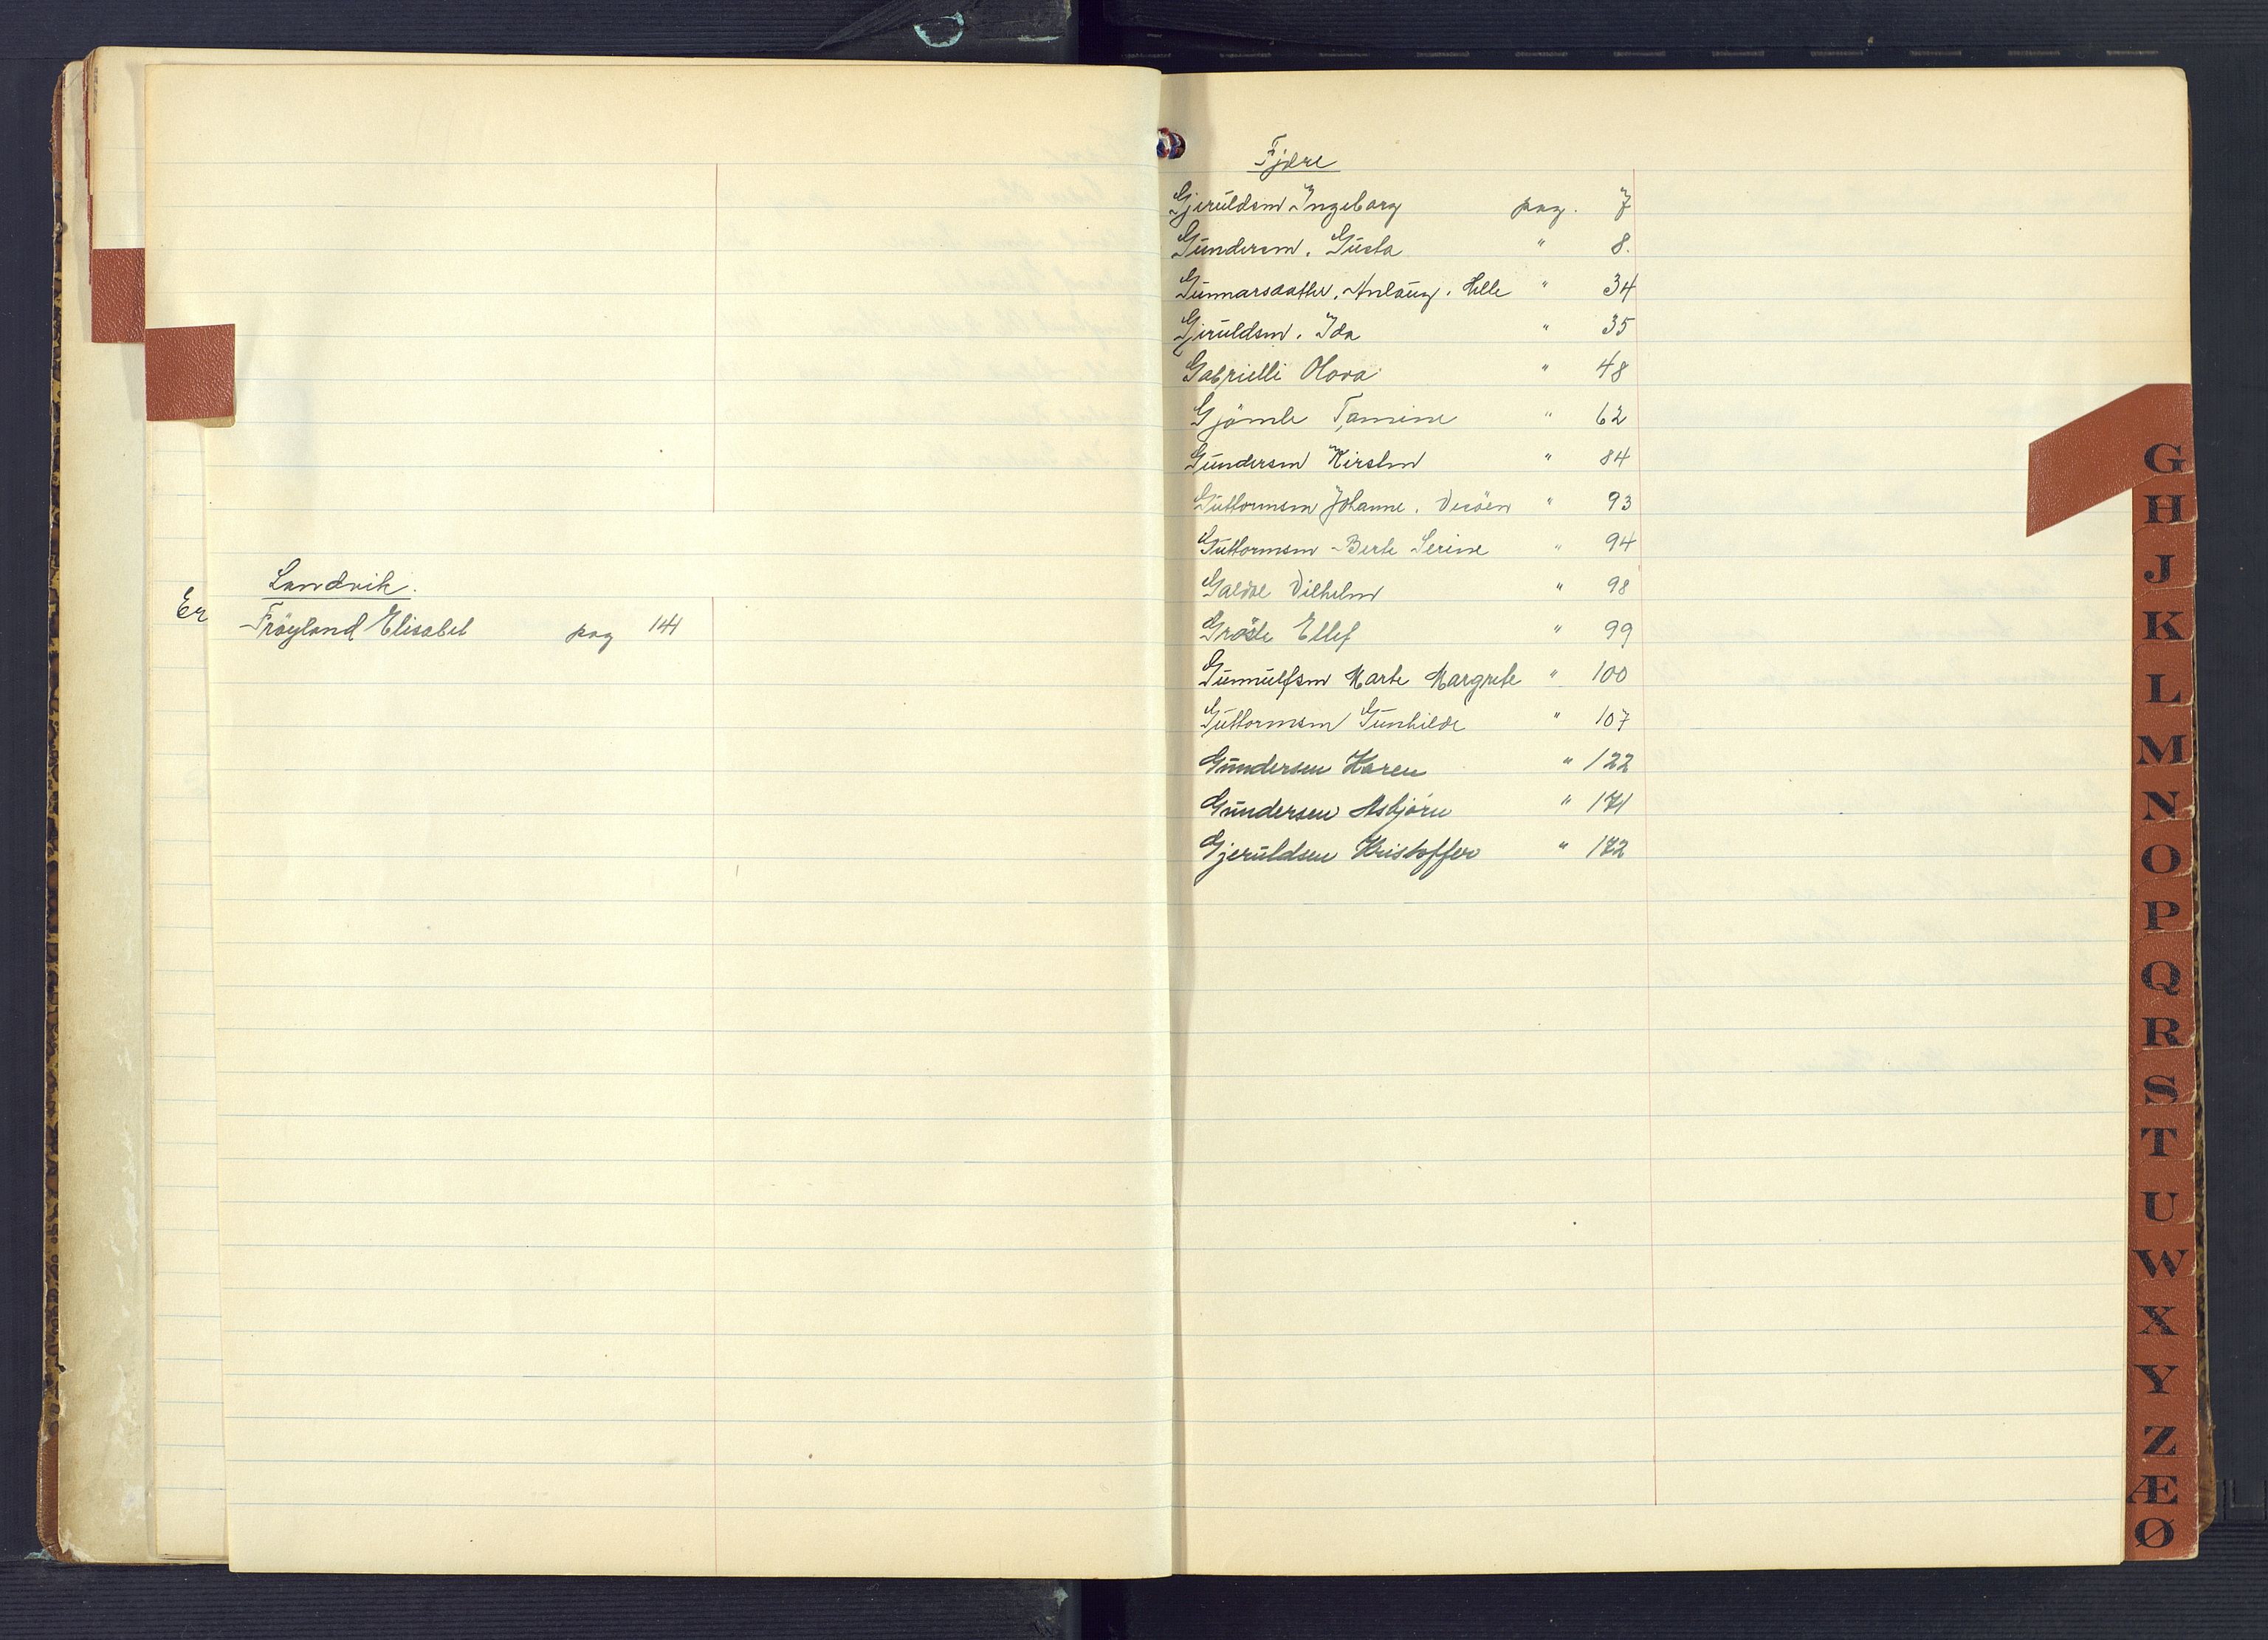 Landvik.
Er
Fröyland Elisabet pag 141
Fjære
Gjeruldsen Ingeborg pag. 7
Gundersen. Gusta " 8.
Gunnarsdatter. Anlaug. Helle " 34
Gjeruldsen. Ida " 35
Gabrielli Olova " 48
Gjömle Tamine " 62
Gundersen Kirsten " 84
Guttormsen Johanne. Vesöen " 93
Guttormsen Berte Serine " 94
Galdal Vilhelm " 98
Gröste Ellef " 99
Gunnulfsen Marte Margrete " 100
Guttormsen Gunhilde " 107
Gundersen Karen " 122
Gundersen Asbjörn " 171
Gjeruldsen Kristoffer " 172
G
H
J
K
L
M
N
O
P
Q
R
S
T
U
W
X
Y
Z
Æ
Ø